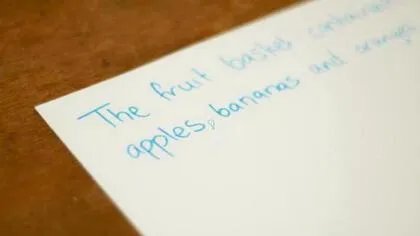 The fruit basket contained
apples, bananas and oranges